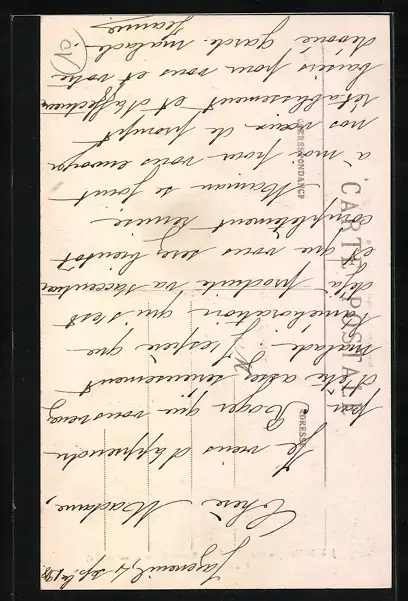 le 4 sept. 1908
Chère Madame,
Je viens d'apprendre
par Roger que vous venez
d'être assez sérieusement
malade. J'espère que
l'amélioration qui s'est
déjà produite va s'accentuer
et que vous serez bientôt
complètement remise.
Maman se joint
à moi pour vous envoyer
nos vœux de prompt
rétablissement et d'affectueux
baisers pour vous et votre
dévoué garde-malade.
Jeanne
CARTE POSTALE
CORRESPONDANCE
ADRESSE